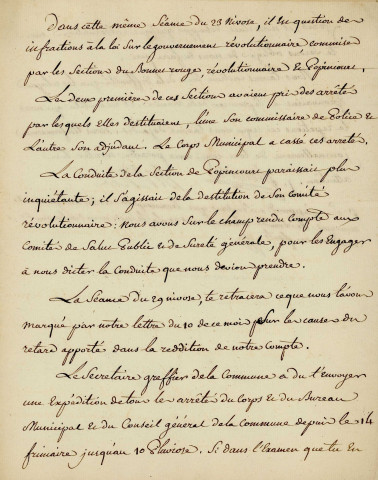 Dans cette même Séance du 23 Nivose, il fut question des
infractions à la loi Sur le gouvernement révolutionnaire commises
par les Sections du Bonnet rouge, révolutionnaire & Popincourt,
Les deux premières de ces Sections avaient pris des arrêtés
par lesquels Elles destituaient, l'une Son commissaire de Police &
L'autre Son adjudant. Le Corps Municipal a cassé ces arrêtés.
La Conduite de la Section de Popincourt paraissait plus
inquiétante; il S'agissait de la destitution de Son Comité
révolutionnaire: Nous avons Sur le champ rendu Compte aux
Comités de Salut Public & de Sureté générale, pour les Engager
à nous dicter la Conduite que nous devions prendre.
La Séance du 29 nivose, te retracera ce que nous t'avons
marqué par notre lettre du 10 de ce mois Sur les causes du
retard apporté dans la reddition de notre Compte.
Le Secretaire greffier de la Commune a du t'Envoyer
une Expédition de tous les arrêtés du Corps & du Bureau
Municipal & du Conseil général de la commune depuis le 14
frimaire jusqu'au 10 Pluviose. Si dans l'Examen que tu En